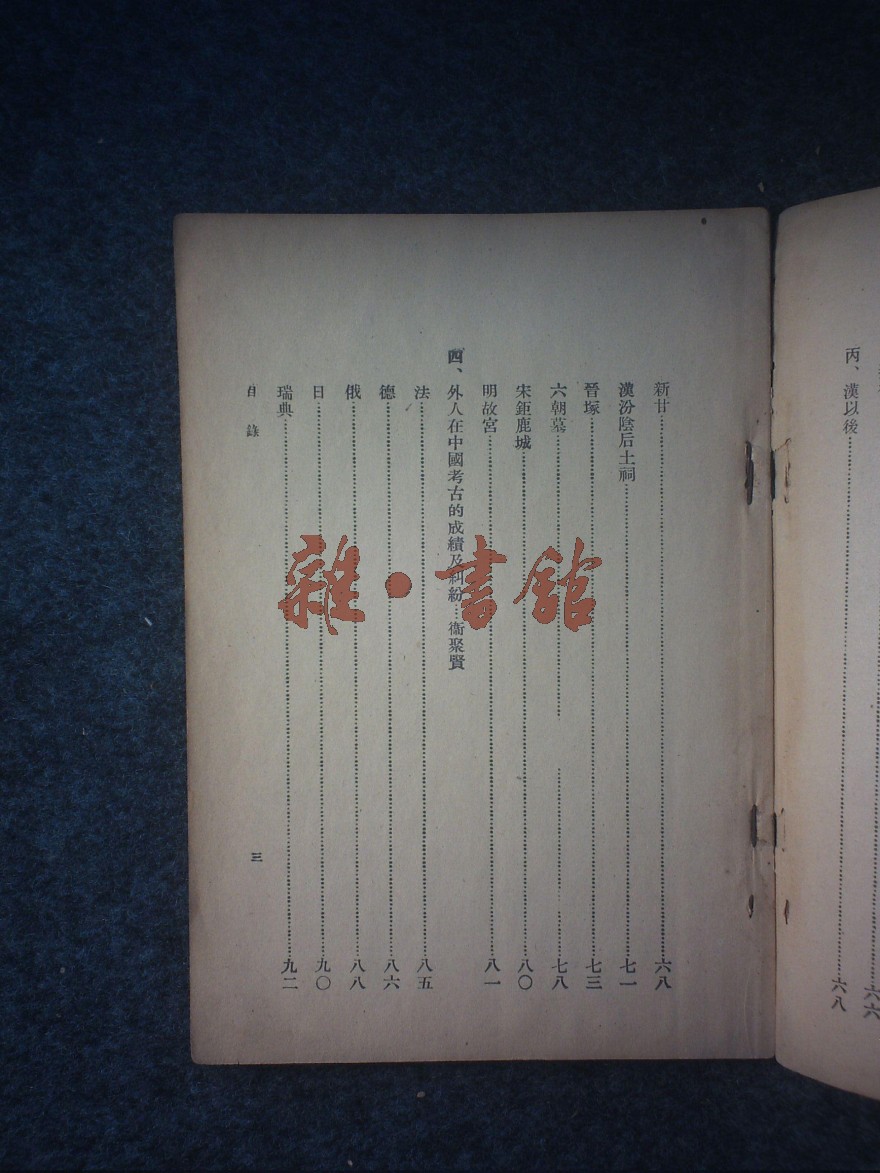 丙、漢以後……六八
新廿……六八
漢汾陰后土祠……七一
晉塚……七三
六朝墓……七八
宋鉅鹿城……八〇
明故宮……八一
四、外人在中國考古的成績及糾紛…衞聚賢
法……八五
德……八六
俄……八八
日……九〇
瑞典……九二
目錄
三
雜·書館